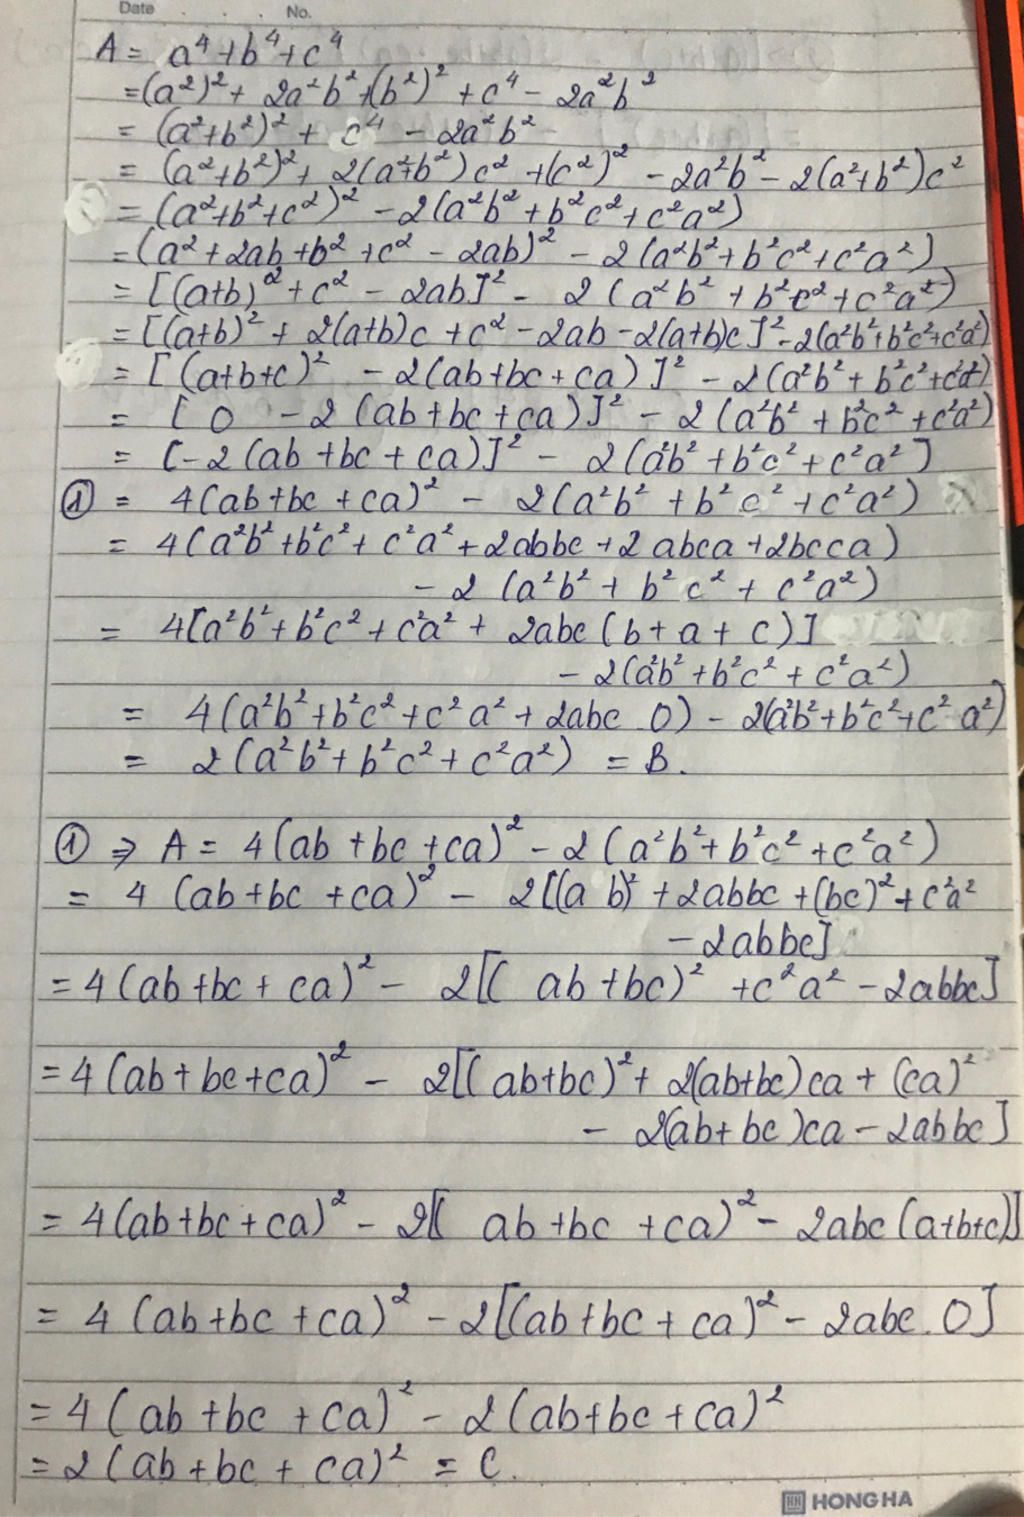 Date . . . No.
A = a⁴+b⁴+c⁴
=(a²)²+ 2a²b²+(b²)² + c⁴ - 2a²b²
= (a²+b²)² + c⁴ - 2a²b²
= (a²+b²)²+ 2(a²+b²)c² +(c²)² - 2a²b² - 2(a²+b²)c²
= (a²+b²+c²)² - 2(a²b²+b²c²+c²a²)
=(a²+2ab+b²+c² - 2ab)² - 2(a²b²+b²c²+c²a²)
= [(a+b)²+c² - 2ab]² - 2(a²b²+b²c²+c²a²)
=[(a+b)² + 2(a+b)c +c² -2ab -2(a+b)c]² -2(a²b²+b²c²+c²a²)
= [(a+b+c)² - 2(ab+bc+ca)]² - 2(a²b²+b²c²+c²a²)
= [0 - 2(ab+bc+ca)]² - 2(a²b²+b²c²+c²a²)
= [-2(ab+bc+ca)]² - 2(a²b²+b²c²+c²a²]
① = 4(ab+bc+ca)² - 2(a²b²+b²c²+c²a²)
= 4(a²b²+b²c²+c²a²+2abbc+2abca+2bcca)
- 2(a²b²+b²c²+c²a²)
= 4[a²b²+b²c²+c²a²+ 2abc(b+a+c)]
- 2(a²b²+b²c²+c²a²)
= 4(a²b²+b²c²+c²a²+2abc.0) - 2(a²b²+b²c²+c²a²)
= 2(a²b²+b²c²+c²a²) = B.
① ⇒ A = 4(ab+bc+ca)² - 2(a²b²+b²c²+c²a²)
= 4(ab+bc+ca)² - 2[(ab)²+2abbc+(bc)²+c²a²
-2abbc]
=4(ab+bc+ca)² - 2[(ab+bc)² +c²a² -2abbc]
=4(ab+bc+ca)² - 2[(ab+bc)²+ 2(ab+bc)ca + (ca)²
- 2(ab+bc)ca - 2abbc]
= 4(ab+bc+ca)² - 2[(ab+bc+ca)² - 2abc(a+b+c)]
= 4(ab+bc+ca)² - 2[(ab+bc+ca)² - 2abc.0]
= 4(ab+bc+ca)² - 2(ab+bc+ca)²
= 2(ab+bc+ca)² = C.
HH HONG HA